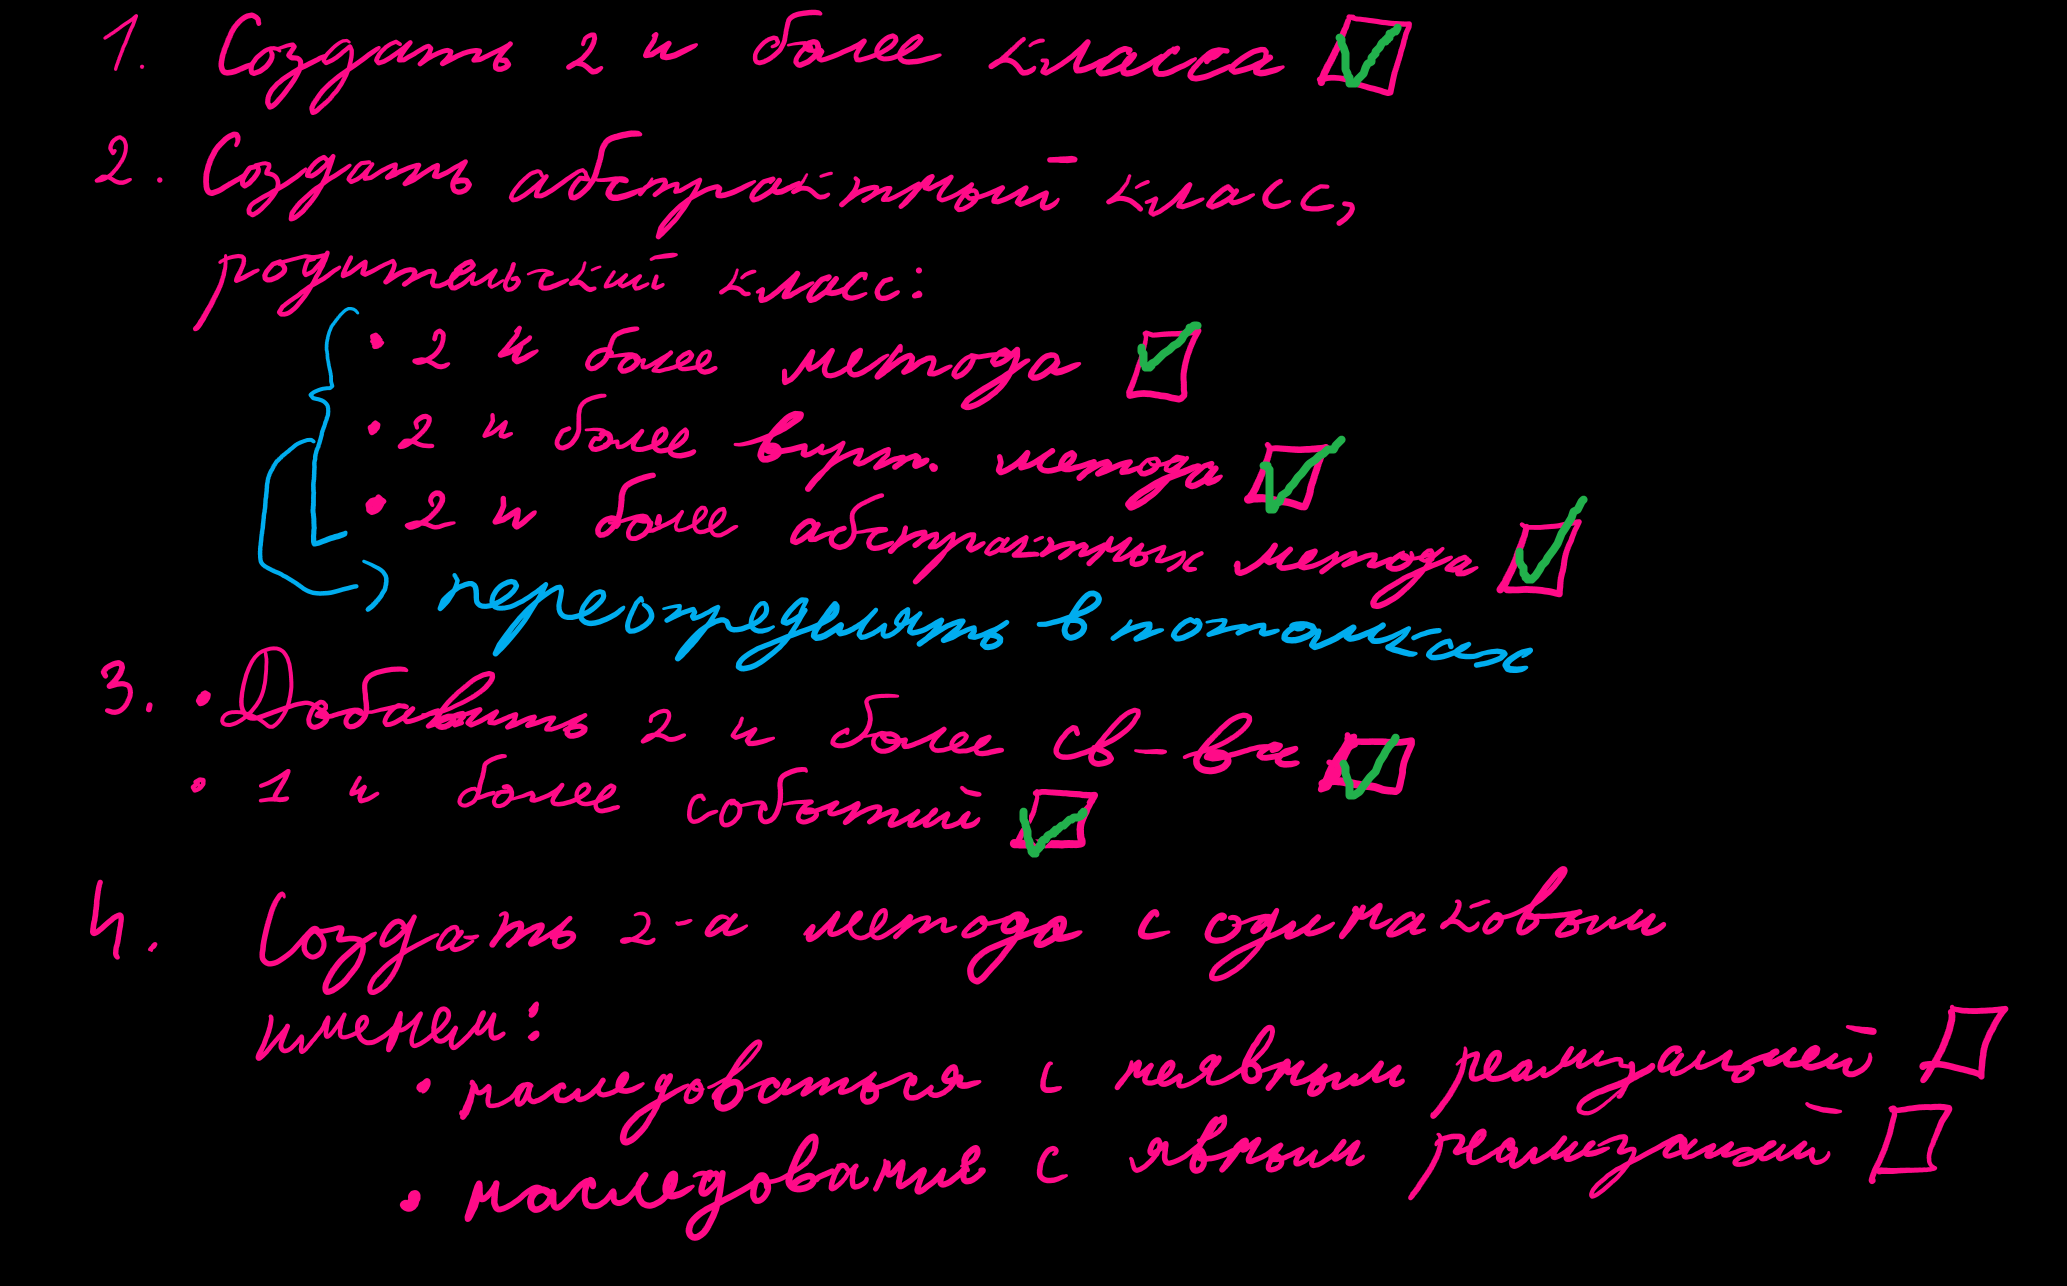 1. Создать 2 и более класса
2. Создать абстрактный класс,
родительский класс:
• 2 и более метода
• 2 и более вирт. метода
• 2 и более абстрактных метода
, переопределять в потомках
3. • Добавить 2 и более св-вся
• 1 и более событий
4. Создать 2-а метода с одинаковым
именем:
• наследоваться с неявным реализацией
• наследование с явным реализаций